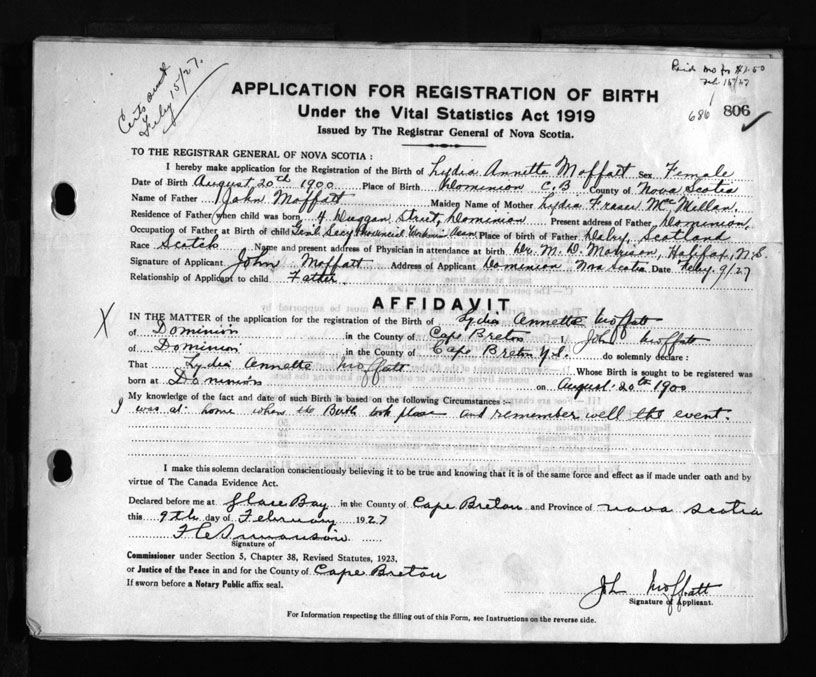 Certs out
Feby 15/27.
Paid MO for $1.50
Feb. 15/27
686
806
APPLICATION FOR REGISTRATION OF BIRTH
Under the Vital Statistics Act 1919
Issued by The Registrar General of Nova Scotia.
TO THE REGISTRAR GENERAL OF NOVA SCOTIA :
I hereby make application for the Registration of the Birth of Lydia Annetta Moffatt Sex Female
Date of Birth August 20th 1900 Place of Birth Dominion C.B County of Nova Scotia
Name of Father John Moffatt Maiden Name of Mother Lydia Fraser McMillan.
Residence of Father when child was born 4 Duggan Street, Dominion Present address of Father Dominion,
Occupation of Father at Birth of child Genl Secy Provincial Workmen Assn Place of birth of Father Dalry, Scotland
Race Scotch Name and present address of Physician in attendance at birth Dr. M. D. Morrison, Halifax, N.S.
Signature of Applicant John Moffatt Address of Applicant Dominion Nova Scotia Date Feby. 9/27
Relationship of Applicant to child Father.
AFFIDAVIT
X
IN THE MATTER of the application for the registration of the Birth of Lydia Annetta Moffatt
of Dominion in the County of Cape Breton I, John Moffatt
of Dominion in the County of Cape Breton N.S. do solemnly declare :
That Lydia Annetta Moffatt Whose Birth is sought to be registered was
born at Dominion on August 20th 1900
My knowledge of the fact and date of such Birth is based on the following Circumstances :-
I was at home when the Birth took place and remember well the event.
I make this solemn declaration conscientiously believing it to be true and knowing that it is of the same force and effect as if made under oath and by
virtue of The Canada Evidence Act.
Declared before me at Glace Bay in the County of Cape Breton and Province of Nova Scotia
this 9th day of February 1927
Signature of
Commissioner under Section 5, Chapter 38, Revised Statutes, 1923,
or Justice of the Peace in and for the County of Cape Breton
If sworn before a Notary Public affix seal.
Jh Moffatt
Signature of Applicant.
For Information respecting the filling out of this Form, see Instructions on the reverse side.